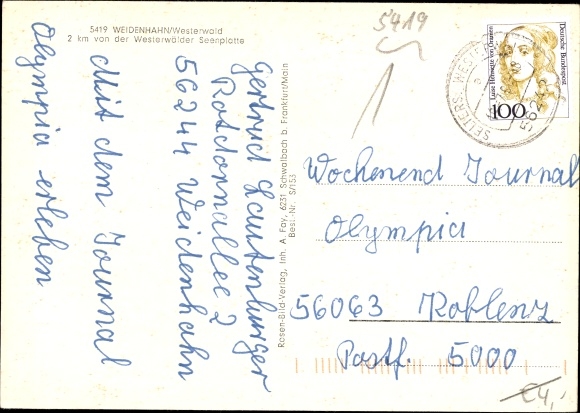 5419 WEIDENHAHN/Westerwald
2 km von der Westerwälder Seenplatte
Gertrud Lautenburger
Rotdornallee 2
56244 Weidenhahn
Mit dem Journal
Olympia erleben
Rosen-Bild-Verlag, Inh. A. Fay, 6231 Schwalbach b. Frankfurt/Main
Best.-Nr. S/153
5419
Deutsche Bundespost
Luise Henriette von Oranien
100
SELTERS, WESTERW
Wochenend Journal
Olympia
56063 Koblenz
Postf. 5000
€4,-